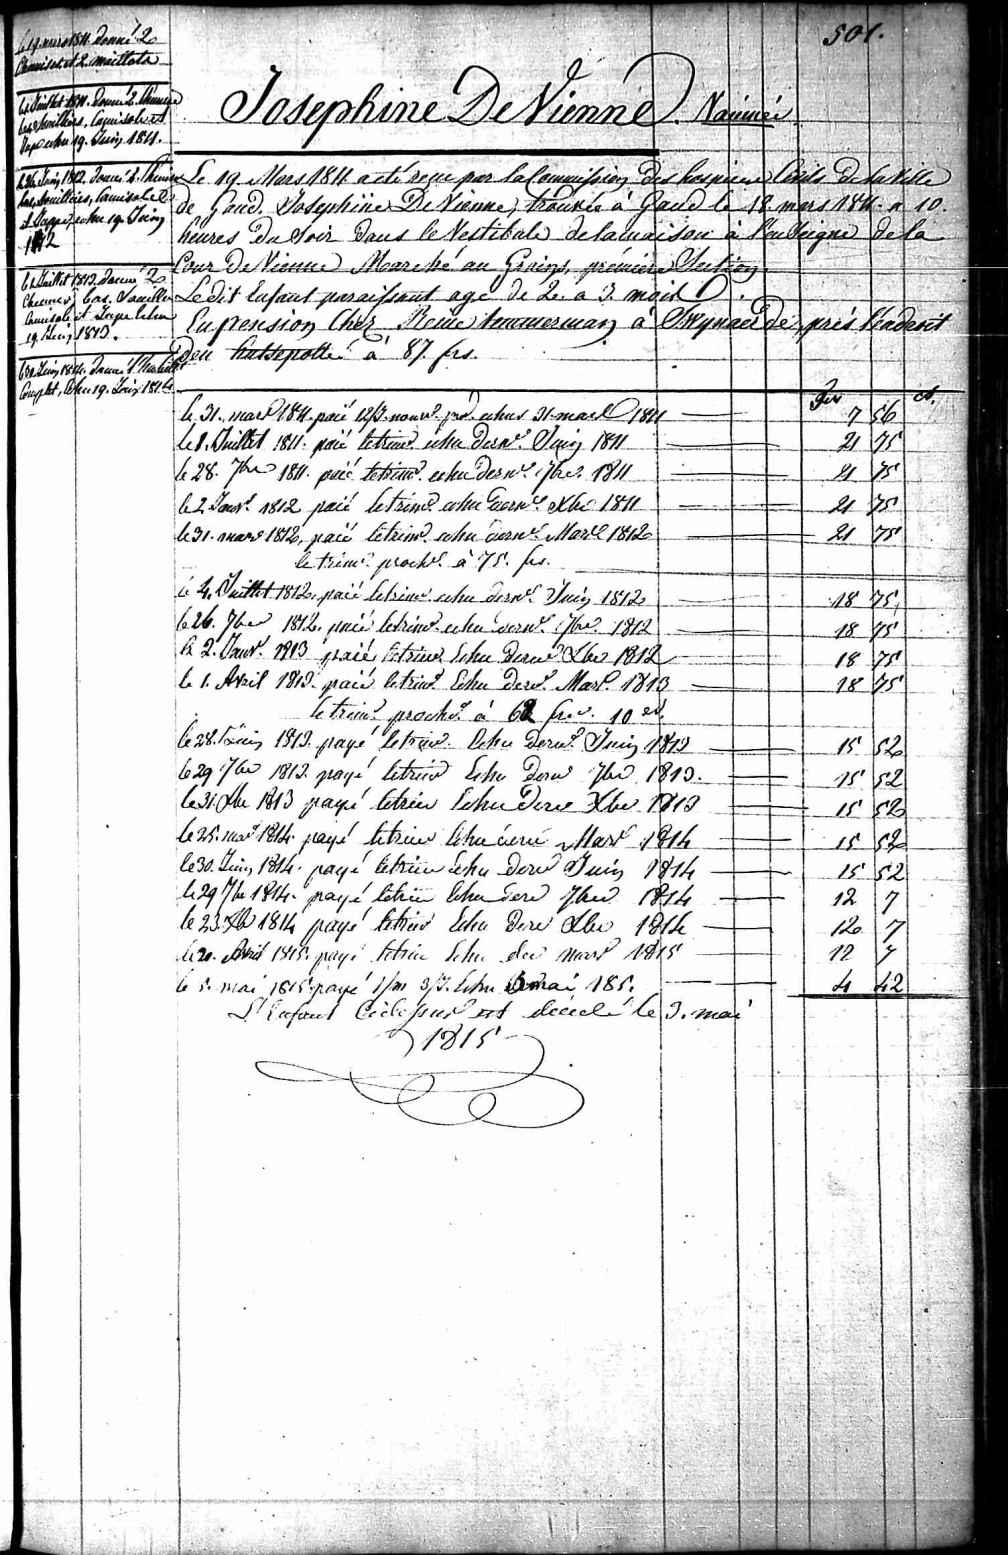 501.
le 19 mars 1811 donné 2
Chemises et 2 maillots
Le 1 Juillet 1811. donné 2. Chemises
bas, Souilliers, Camisole et
Jupe echu 19. Juin 1811.
le 26 Juin 1812. donné 2. Chemises
bas, Souilliers, Camisole
et Juppe, echu 19. Juin
1812
le 1 Juillet 1813. Donné 2
Chemises bas, Souilliers
Camisole et Jupe echu
19. Juin 1813.
le 30. Juin 1814. Donné l'habill
Complet, echu 19. Juin 1814
Josephine De Vienne. Naainée.
Le 19. Mars 1811 a été reçue par la Commission des hospices Civils de la Ville
de Gand. Josephine De Vienne, trouvée à Gand le 18. mars 1811. a 10.
heures du Soir dans le Vestibule de la maison à l'enseigne de la
Cour de Vienne Marché au Grains, première Section.
Le dit Enfant paraissant agé de 2. a 3. mois.
En pension Chez Reine Ammerman à Swynaerde, près l'endroit
Den hutsepotte à 87. frs.
frs ct.
le 31. mars 1811. paié nouv. echus 31. mars 1811 7 56
le 1. Juillet 1811. paié le trim. echu dern. Juin 1811 21 75
le 28. 7bre 1811. paié le trim. echu dern. 7bre. 1811 21 75
le 2. Janv. 1812 paié le trim. echu dern. Xbre 1811 21 75
le 31. mars 1812, paié le trim. echu dern. Mars 1812 21 75
le trim. proch. à 75. frs.
le 4. Juillet 1812. paié le trim. echu dern. Juin 1812 18 75
le 26. 7bre 1812. paié le trim. echu dern. 7bre. 1812 18 75
le 2. Janv. 1813 paié le trim. Echu dern. Xbre 1812 18 75
le 1. Avril 1813. paié le trim. Echu dern. Mars. 1813 18 75
le trim. proch. à 62 frs. 10 ct.
le 28. Juin 1813. payé le trim. Echu dern. Juin 1813 15 52
le 29 7bre 1813. payé le trim Echu dern 7bre 1813. 15 52
le 31 Xbre 1813 payé le trim Echu dern Xbre 1813 15 52
le 25. mars 1814. payé le trim Echu dern Mars 1814 15 52
le 30. Juin 1814. payé le trim Echu dern Juin 1814 15 52
le 29 7bre 1814. payé le trim Echu dern 7bre 1814 12 7
le 23 Xbre 1814 payé le trim Echu dern Xbre 1814 12 7
le 20. Avril 1815. payé le trim Echu der mars 1815 12 7
le 5. mai 1815. payé 1/m 3/J. Echu 3 mai 185. 4 42
L'Enfant Cidessus est décédé le 3. mai
1815